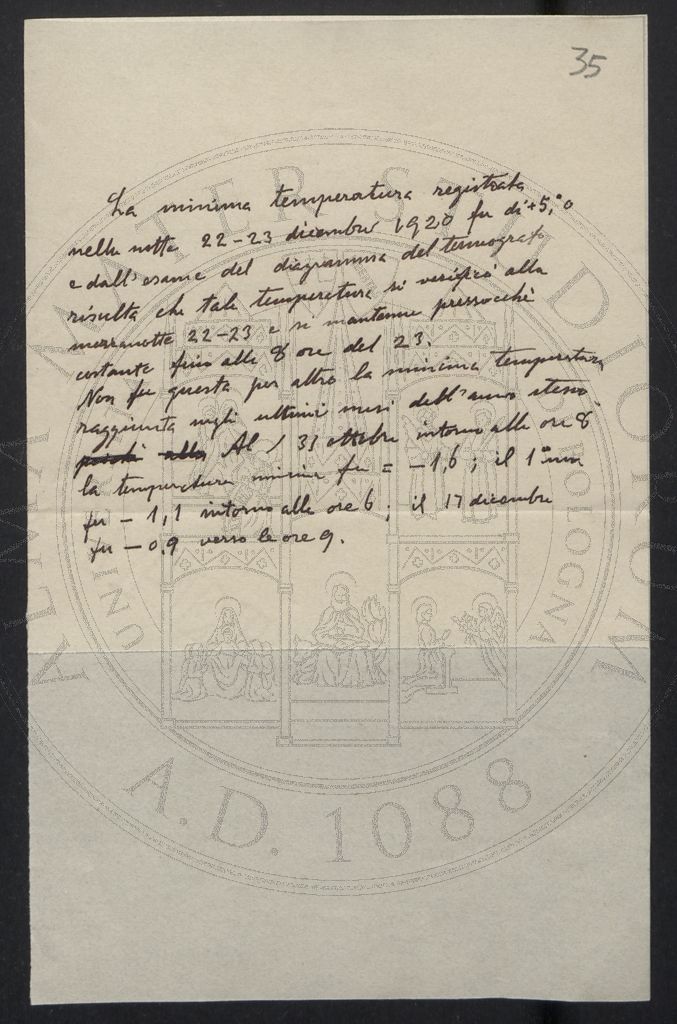 35
La minima temperatura registrata
nella notte 22-23 dicembre 1920 fu di +5,°0
e dall'esame del diagramma del termografo
risulta che tale temperatura si verificò alla
mezzanotte 22-23 e si mantenne pressochè
costante fino alle 8 ore del 23.
Non fu questa per altro la minima temperatura
raggiunta negli ultimi mesi dell'anno stesso.
Al 31 ottobre intorno alle ore 8
la temperatura minima fu = -1,6; il 1°
fu - 1,1 intorno alle ore 6; il 17 dicembre
fu - 0,9 verso le ore 9.
ALMA MATER STUDIORUM
UNIVERSITÀ DI BOLOGNA
A.D. 1088